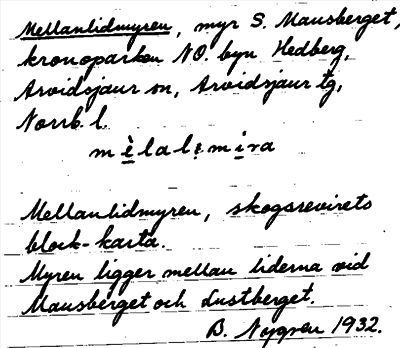 Mellanlidmyren, myr S. Mausberget,
kronoparken NO. byn Hedberg,
Arvidsjaur sn, Arvidsjaur tg,
Norrb. l.
mèlalẹmira
Mellanlidmyren, skogsrevirets
block-karta.
Myren ligger mellan liderna vid
Mausberget och Lustberget.
B. Nygren 1932.